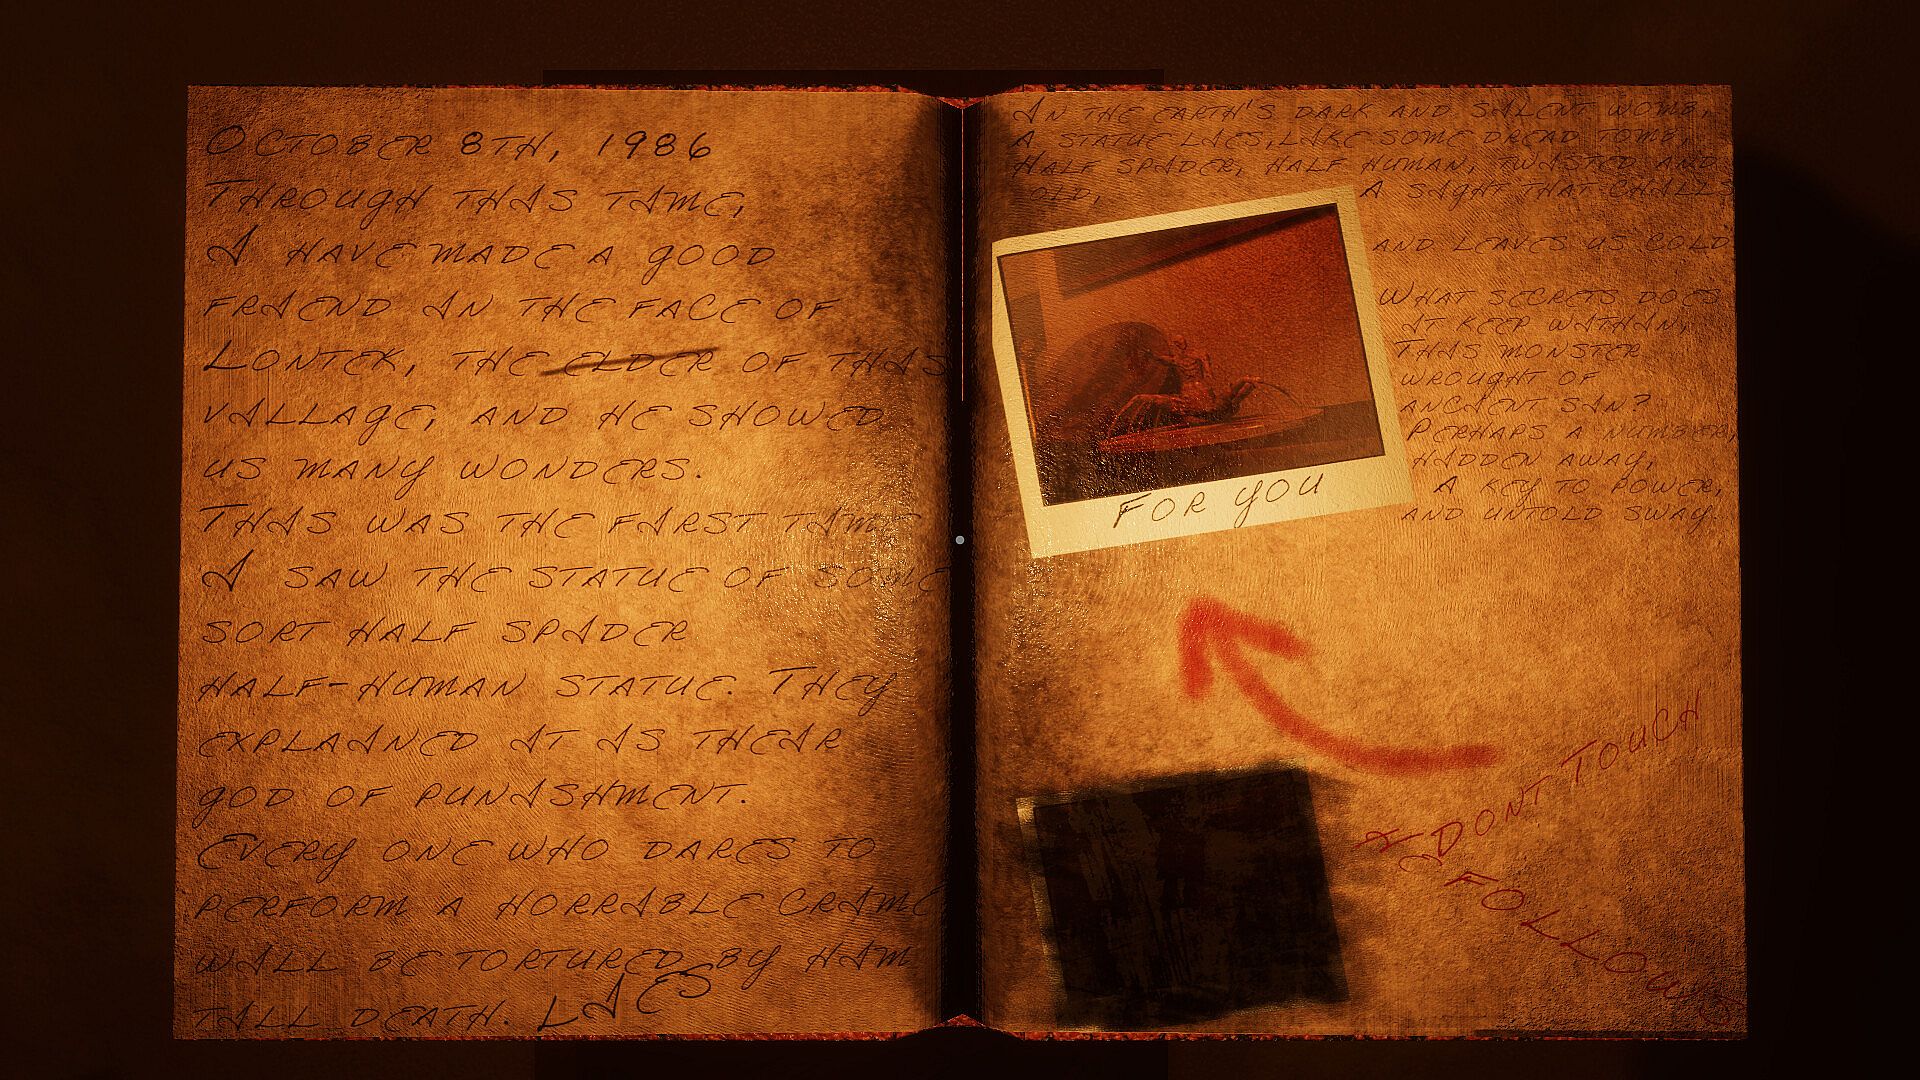 OCTOBER 8TH, 1986
THROUGH THIS TIME,
I HAVE MADE A GOOD
FRIEND IN THE FACE OF
LONTEK, THE ELDER OF THIS
VILLAGE, AND HE SHOWED
US MANY WONDERS.
THIS WAS THE FIRST TIME
I SAW THE STATUE OF SOME
SORT HALF SPIDER
HALF-HUMAN STATUE. THEY
EXPLAINED IT IS THEIR
GOD OF PUNISHMENT.
EVERY ONE WHO DARES TO
PERFORM A HORRIBLE CRIME
WILL BE TORTURED BY HIM
TILL DEATH. LIES
IN THE EARTH'S DARK AND SILENT WOMB,
A STATUE LIES, LIKE SOME DREAD TOMB,
HALF SPIDER, HALF HUMAN, TWISTED AND
OLD, A SIGHT THAT CHILLS
AND LEAVES US COLD
WHAT SECRETS DOES
IT KEEP WITHIN,
THIS MONSTER
WROUGHT OF
ANCIENT SIN?
PERHAPS A NUMBER,
HIDDEN AWAY,
A KEY TO POWER,
AND UNTOLD SWAY.
FOR YOU
DONT TOUCH
FOLLOW